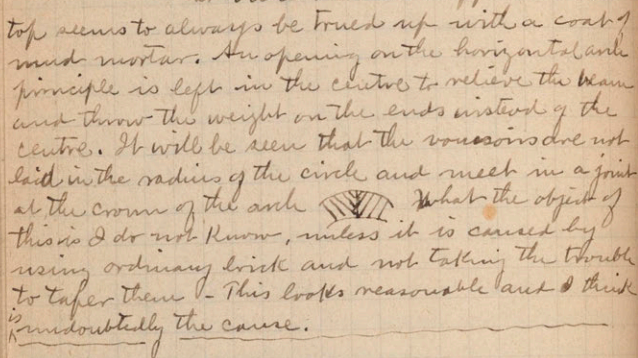 top seems to always be trued up with a coat of
mud mortar. An opening on the horizontal arch
principle is left in the centre to relieve the beam
and throw the weight on the ends instead of the
centre. It will be seen that the voussoirs are not
laid in the radius of the circle and meet in a joint
at the crown of the arch What the object of
this is I do not know, unless it is caused by
using ordinary brick and not taking the trouble
to taper them - This looks reasonable and I think
is undoubtedly the cause.